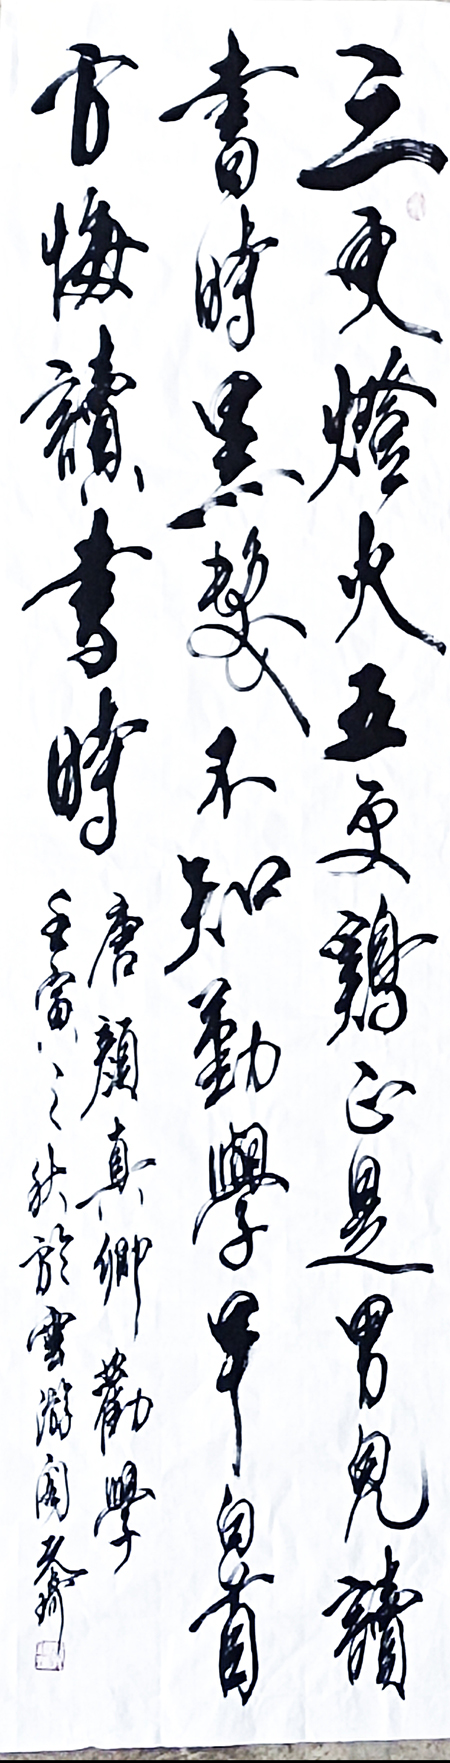 三更燈火五更鷄正是男兒讀
書時黑髮不知勤學早白首
方悔讀書時
唐顏真卿勸學
壬寅之秋於雲游閣